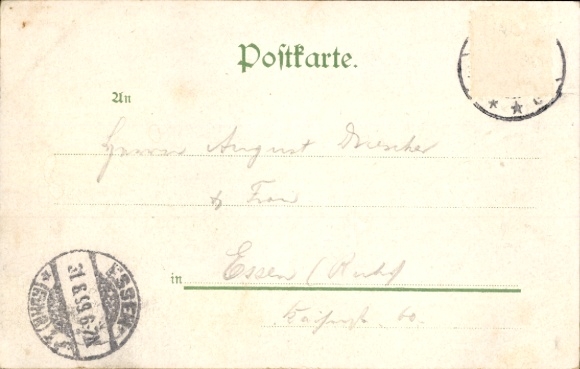 Postkarte.
An
Herrn August Drescher
& Frau
in Essen (Ruhr)
60.
ESSEN
31.8.99.6-7N
(RUHR)